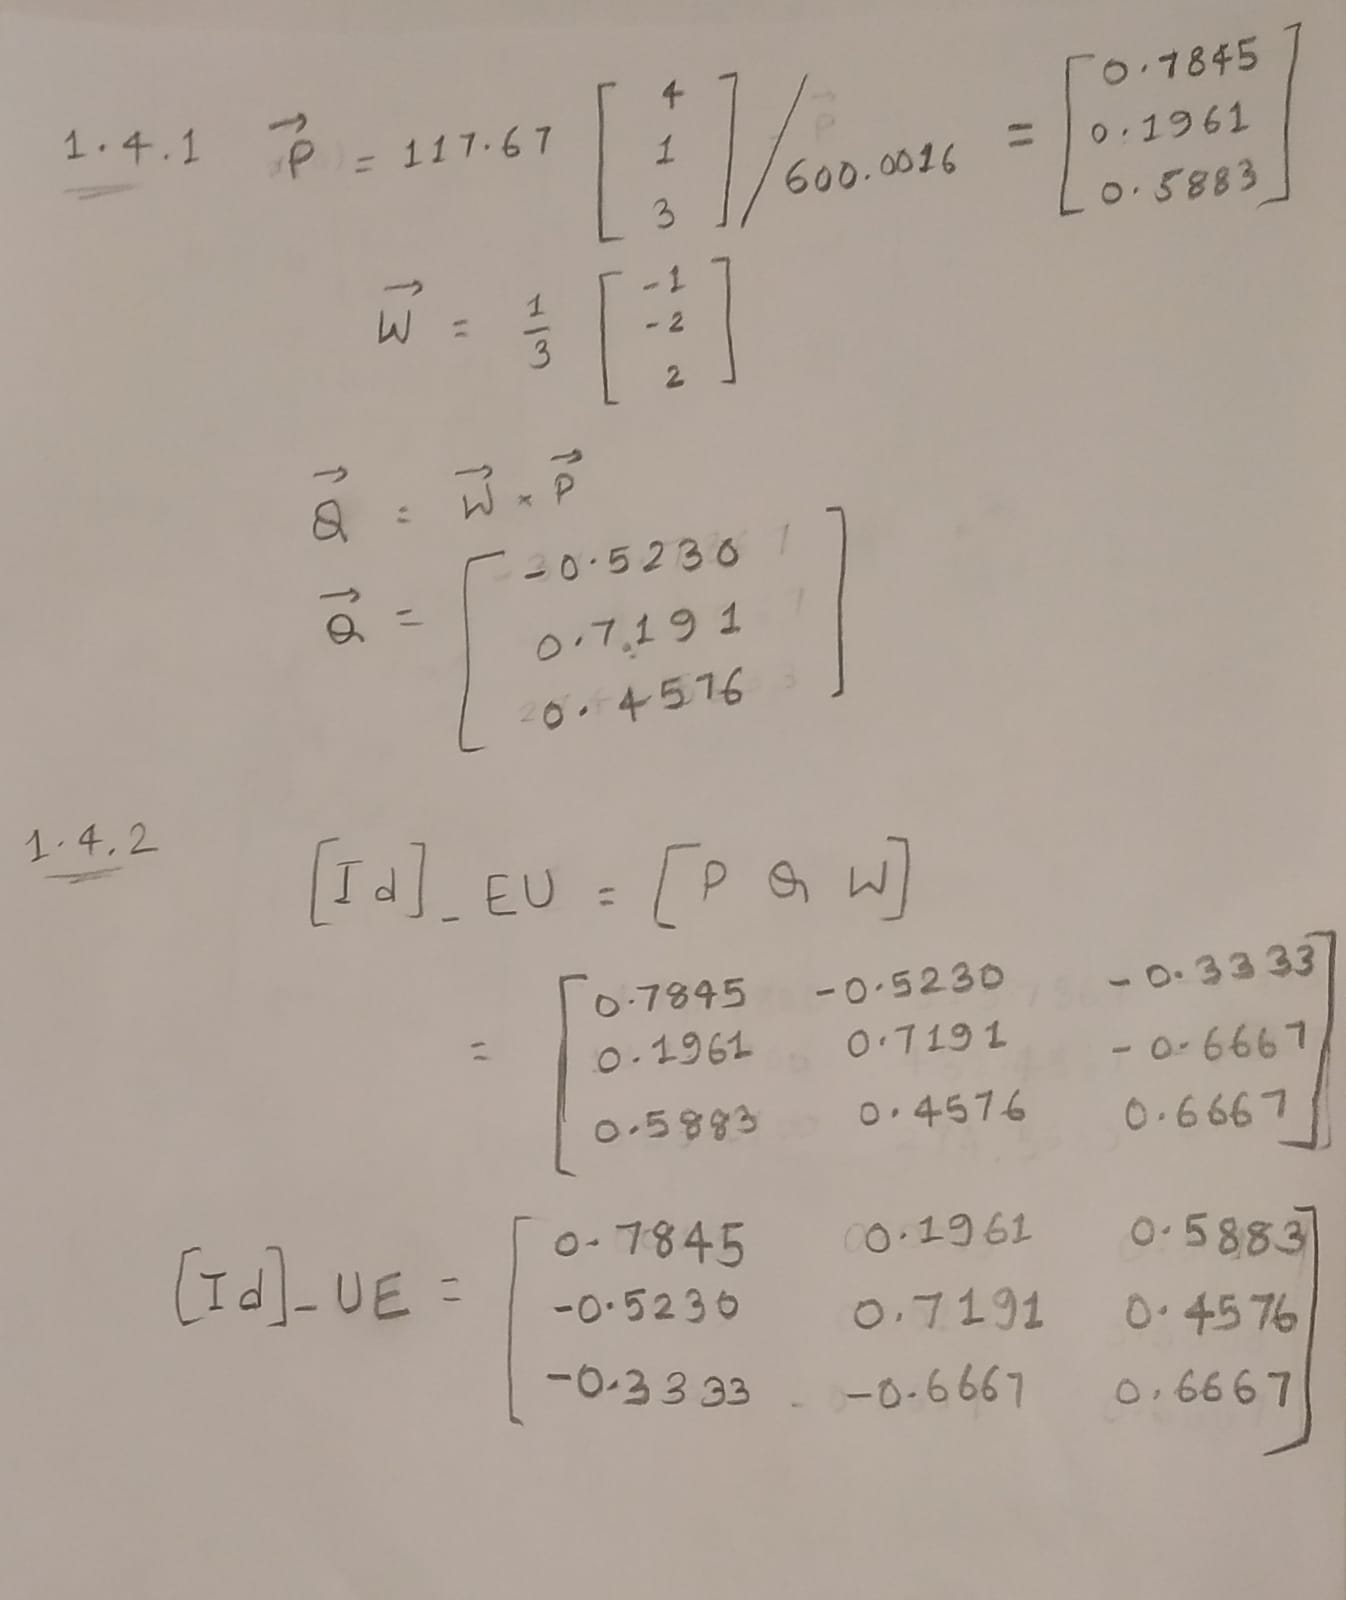 1.4.1 →P = 117.67 [4 1 3] / 600.0016 = [0.7845 0.1961 0.5883]
→W = 1/3 [-1 -2 2]
→Q = →W × →P
→Q = [-0.5230 0.7191 0.4576]
1.4.2 [Id]_EU = [P Q W]
= [0.7845 -0.5230 -0.3333
0.1961 0.7191 -0.6667
0.5883 0.4576 0.6667]
[Id]_UE = [0.7845 0.1961 0.5883
-0.5230 0.7191 0.4576
-0.3333 -0.6667 0.6667]